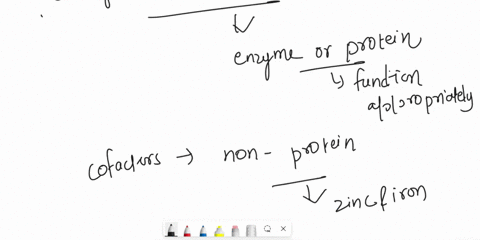 enzyme or protein
↳ function
appropriately
cofactors → non-protein
zinc & iron